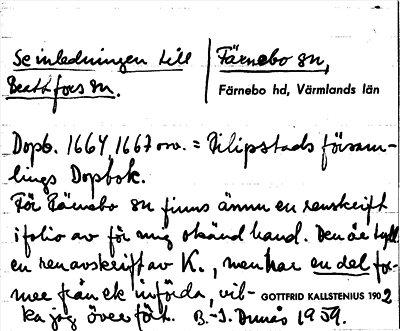 Se inledningen till
Bratt fors sn.
Färnebo sn,
Färnebo hd, Värmlands län
Dopb. 1664, 1667 = Filipstads försam-
lings Dopbok.
För Färnebo sn finns ännu en renskrift
i folio av för mig okänd hand. Den är
en renavskrift av K., men har en del for-
mer från ek införda, vil- GOTTFRID KALLSTENIUS 1902
ka jag överfört. B.-S. 1959.